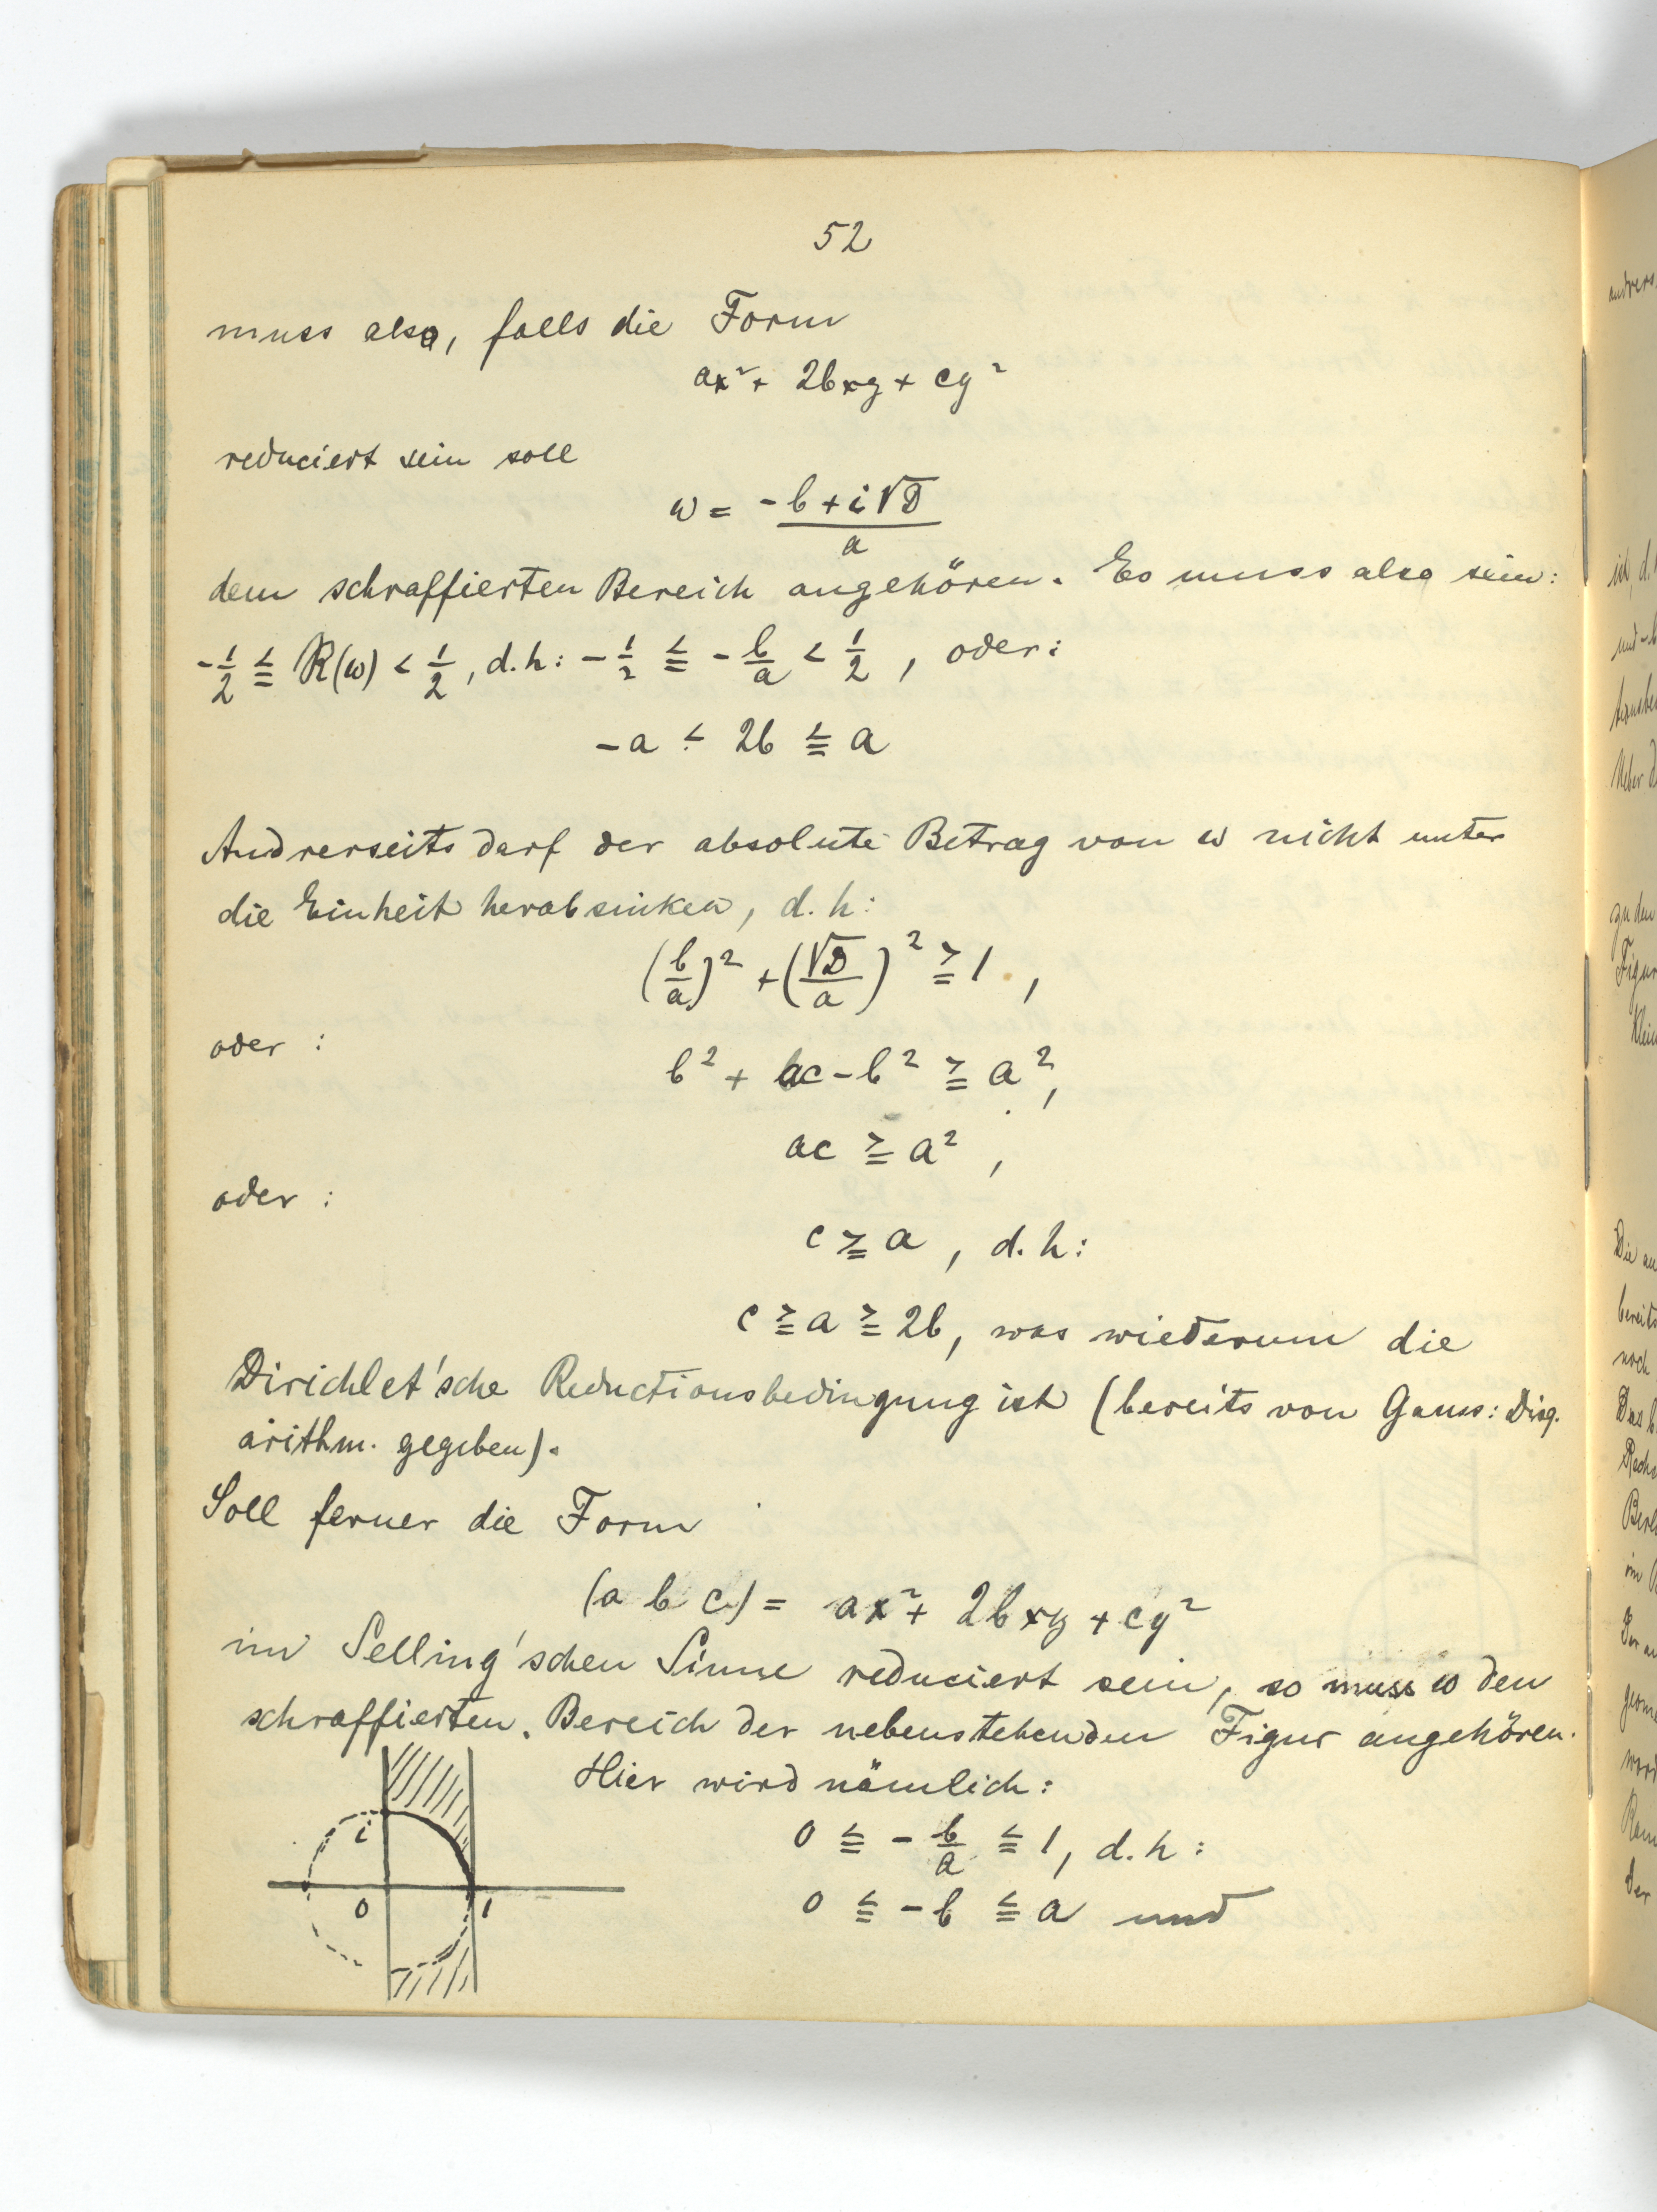 52
muss also, falls die Form
ax² + 2bxy + cy²
reduciert sein soll
ω = (-b + i√D)/a
dem schraffierten Bereich angehören. Es muss also sein:
-1/2 ≦ R(ω) < 1/2, d.h: -1/2 ≦ -b/a < 1/2, oder:
-a < 2b ≦ a
Andrerseits darf der absolute Betrag von ω nicht unter
die Einheit herabsinken, d.h:
(b/a)² + (√D/a)² ≧ 1,
oder:
b² + ac - b² ≧ a²,
ac ≧ a²,
oder:
c ≧ a, d.h:
c ≧ a ≧ 2b, was wiederum die
Dirichlet'sche Reductionsbedingung ist (bereits von Gauss: Disq.
arithm. gegeben).
Soll ferner die Form
(a b c) = ax² + 2bxy + cy²
im Selling'schen Sinne reduciert sein, so muss ω den
schraffierten Bereich der nebenstehenden Figur angehören.
Hier wird nämlich:
i
0 ≦ -b/a ≦ 1, d.h:
0 1
0 ≦ -b ≦ a und